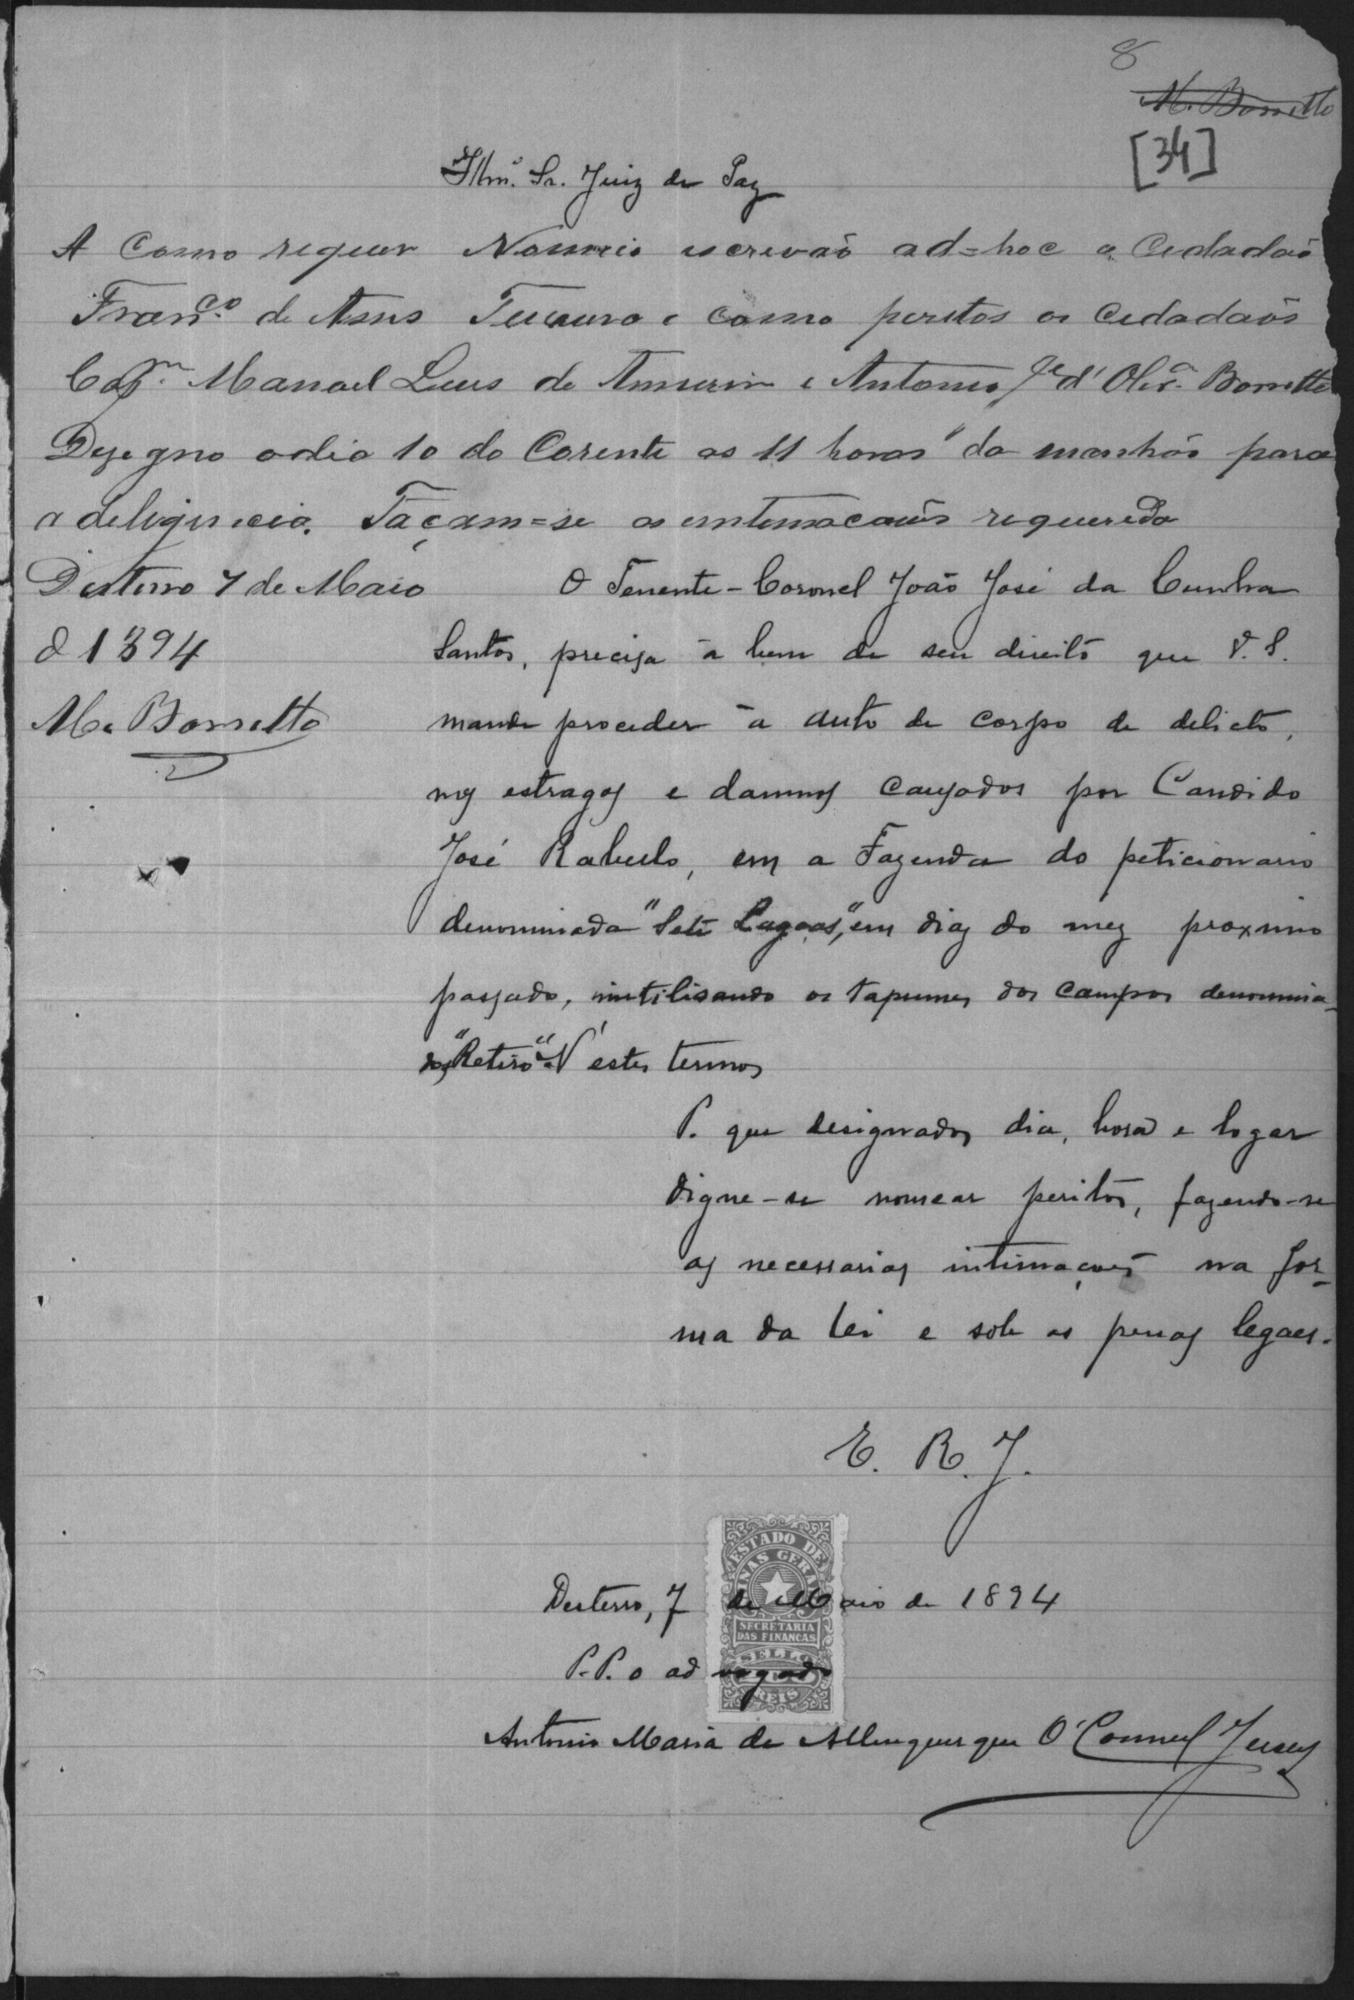 8
M. Borretto
[34]
Illmº. Sr. Juiz de Paz
A Como requer Nomeio escrevão ad=hoc o Cidadão
Franᶜᵒ. de Assis e como peritos os Cidadãos
Capᵐ. Manoel Luis de Amorim e Antonio Jᵉ d' Olivᵃ. Borretto
Desegno o dia 10 do Corente as 11 horas da manhãs para
a deliguecia. Façam=se as entemacoẽs requereda
Desterro 7 de Maio
d 1894
M. Borretto
O Tenente-Coronel João José da Cunha
Santos, precisa á bem de seu direito que V. S.
mande proceder á auto de corpo de delicto,
nos estragos e damnos causados por Candido
José Rabello, em a Fazenda do peticionario
denominada "Sete Lagoas", em dias do mez proximo
passado, inutilisando os tapumes dos campos denomina-
dos "Retiro". N'estes termos
P. que designados dia, hora e logar
digne-se nomear peritos, fazendo-se
as necessarias intimações na for-
ma da lei e sob as penas legaes.
E. R. J.
ESTADO DE
MINAS GERAES
SECRETARIA
DAS FINANÇAS
SELLO
REIS
Desterro, 7 de Maio de 1894
P.P. o advogado
Antonio Maria de Albuquerque O'Connel Jersey